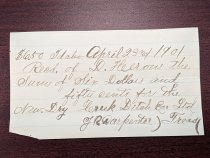 $6.50 Idaho April 23rd 1901
Recd. of D. Heron the
Sum of Six Dollars and
fifty cents for the
New Dry Creek Ditch Co Ltd
J Carpenter Treas